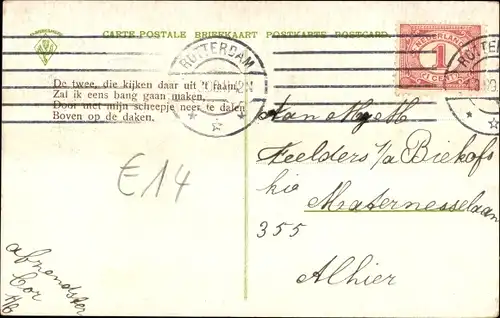 CARTE POSTALE BRIEFKAART POSTKARTE POSTCARD.
ROTTERDAM
NEDERLAND
1
CENT
ROTTER
De twee, die kijken daar uit 't raam,
Zal ik eens bang gaan maken,
Door met mijn scheepje neer te dalen
Boven op de daken.
Aan Mej M
Feelders
hio
Maternesselaan
355
Alhier
E14
afzendster
Cor